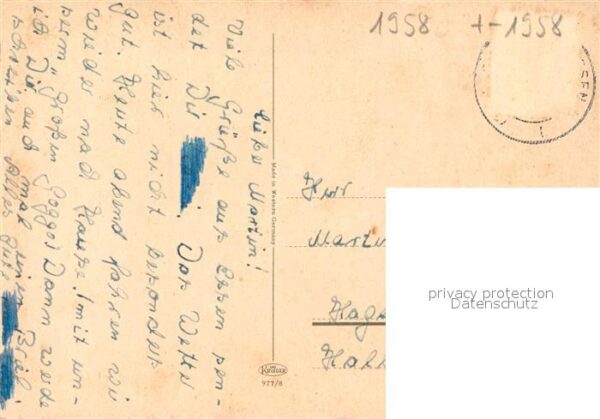 1958 + - 1958
SEN
Lieber Martin!
Viele Grüße aus Essen sen-
det Dir
. Das Wetter
ist hier nicht besonders
gut. Heute abend fahren wir
wieder nach Hause! mit un-
serm "großen Goggo". Dann werde
ich Dir auch mal einen Brief
schreiben. Alles Gute
Made in Western Germany
Krüger
977/8
Herr
Martin
Hage
Hal
privacy protection
Datenschutz